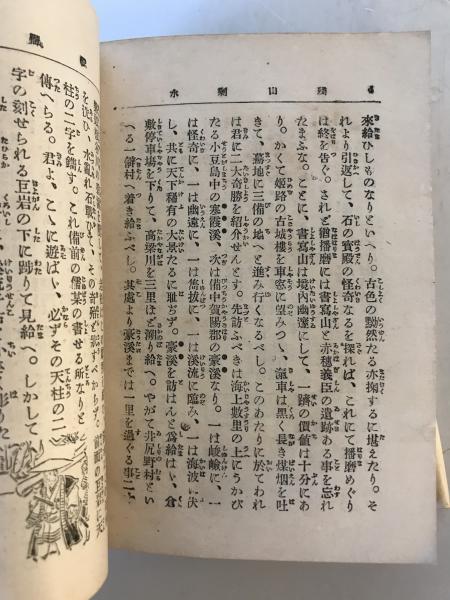 水剰山殘
來給ひしものなりといへり。古色の黝然たる亦掬するに堪えたり。そ
れより引返して、石の寶殿の怪奇なるを探れば、これにて播磨めぐり
は終を告ぐ。されど猶播磨には書寫山と赤穗義臣の遺跡ある事を忘れ
たまふな。ことに、書寫山は境內幽邃にして、一躋の價値は十分にあ
り。かくて姬路の古城樓を車窓に望みつゝ、滊車は黑く長き煤烟を吐
きて、驀地に三備の地へと進み行くなるべし。このあたりに於てわれ
は君に二大奇勝を紹介せんとす。先訪ふべきは海上數里の上にうかび
たる小豆島中の寒霞溪、次は備中賀陽郡の豪溪なり。一は峻嶮に、一
は怪奇に、一は幽遠に、一は
に、一は溪流に臨み、一は海波に浃
し、共に天下稀有の大景たるに耻ぢず。豪溪を訪はんと爲給はゞ、倉
敷停車塲を下りて、高梁川を三里ほど溯り給へ。やがて井尻野村とい
へる一僻村へ着き給ふべし。其處より豪溪までは一里を過ぐる事二、
柱の二字を鐫す。これ備前の儒某の書せる所なりと
傳へらる。君よ、こゝに遊ばゞ、必ずその天柱の二
字の刻せられる巨岩の下に跨りて見給へ。しかして